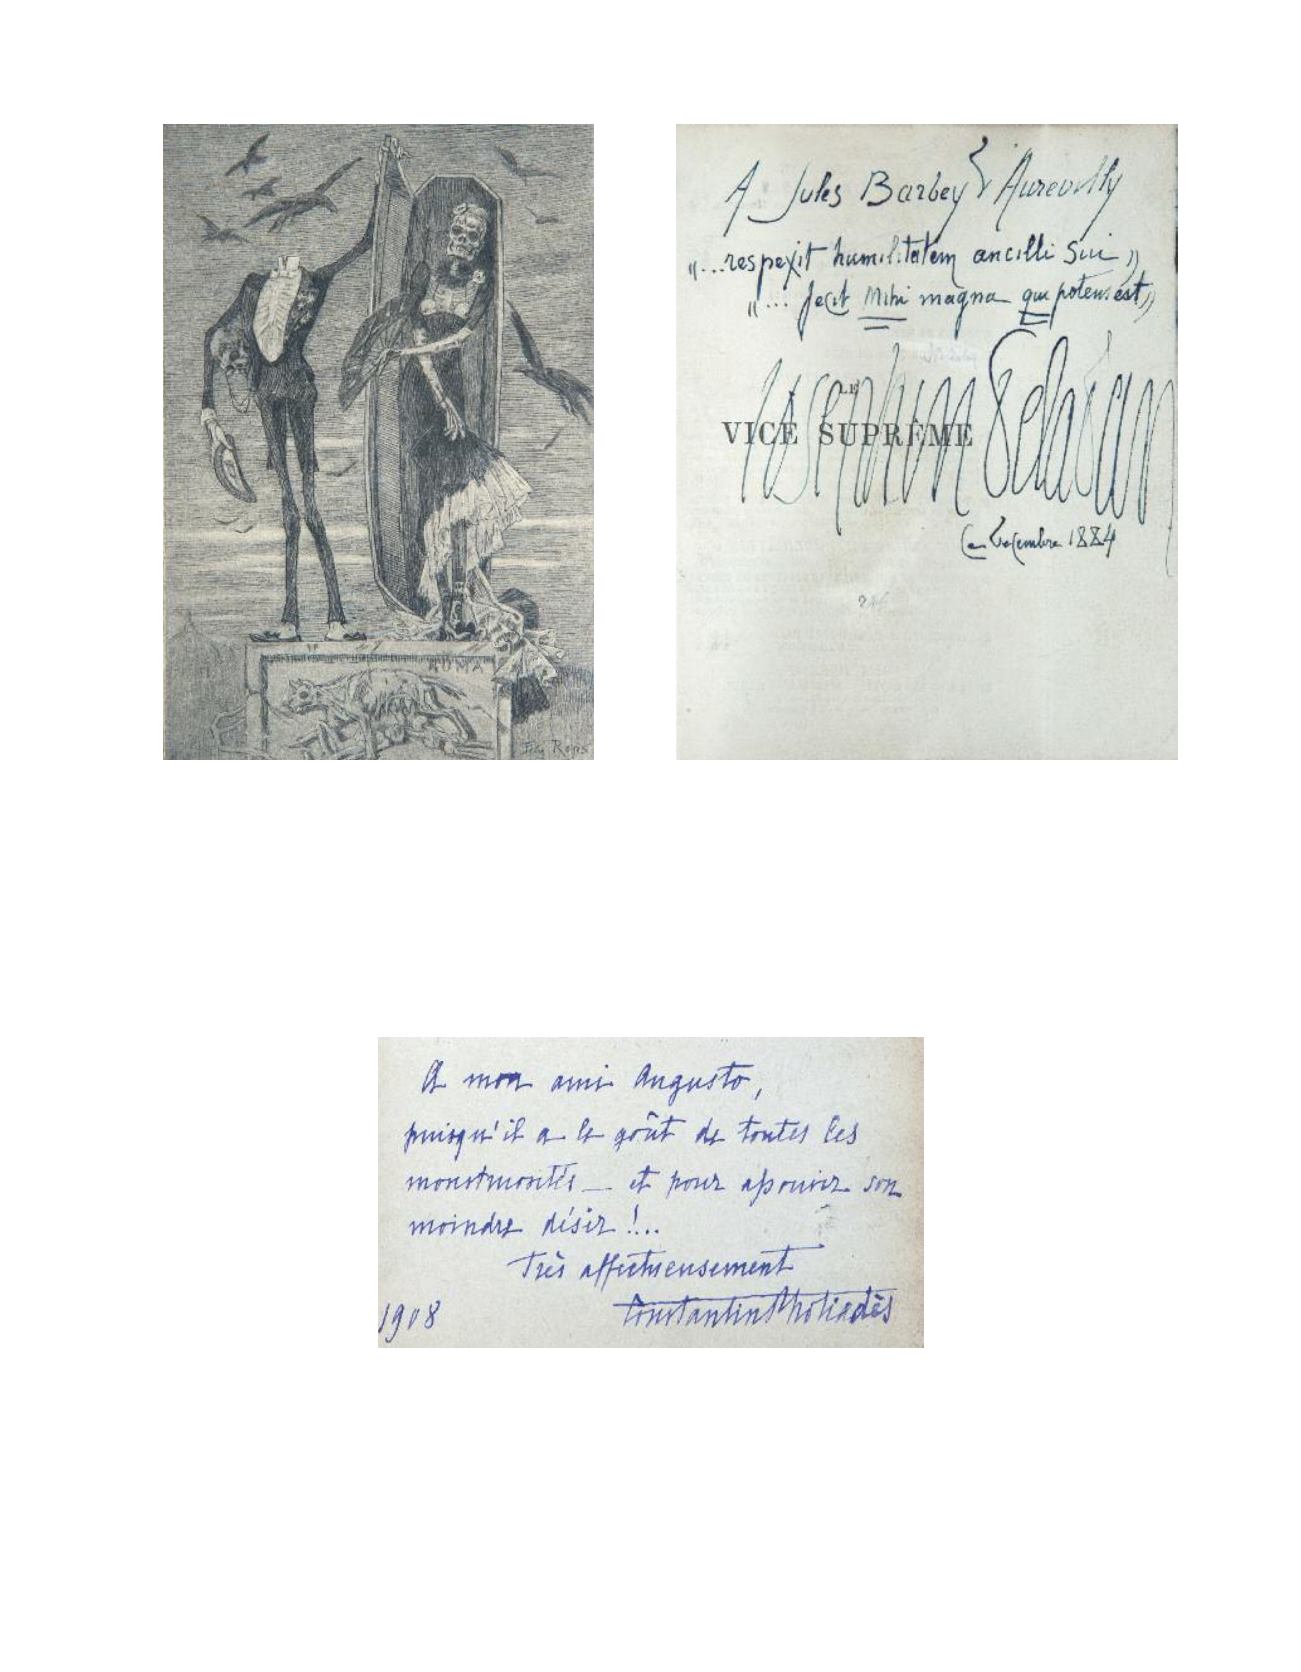 ROMA
Fély Rops
A Jules Barbey d'Aurevilly
"...respexit humilitatem ancilli sui"
"... fecit Mihi magna qui potens est"
LE
VICE SUPRÊME
Josephin Peladan
Ce Decembre 1884
A mon ami Augusto,
puisqu'il a le goût de toutes les
monstruosités — et pour assouvir son
moindre désir !..
Très affectueusement
Constantin Photiadès
1908